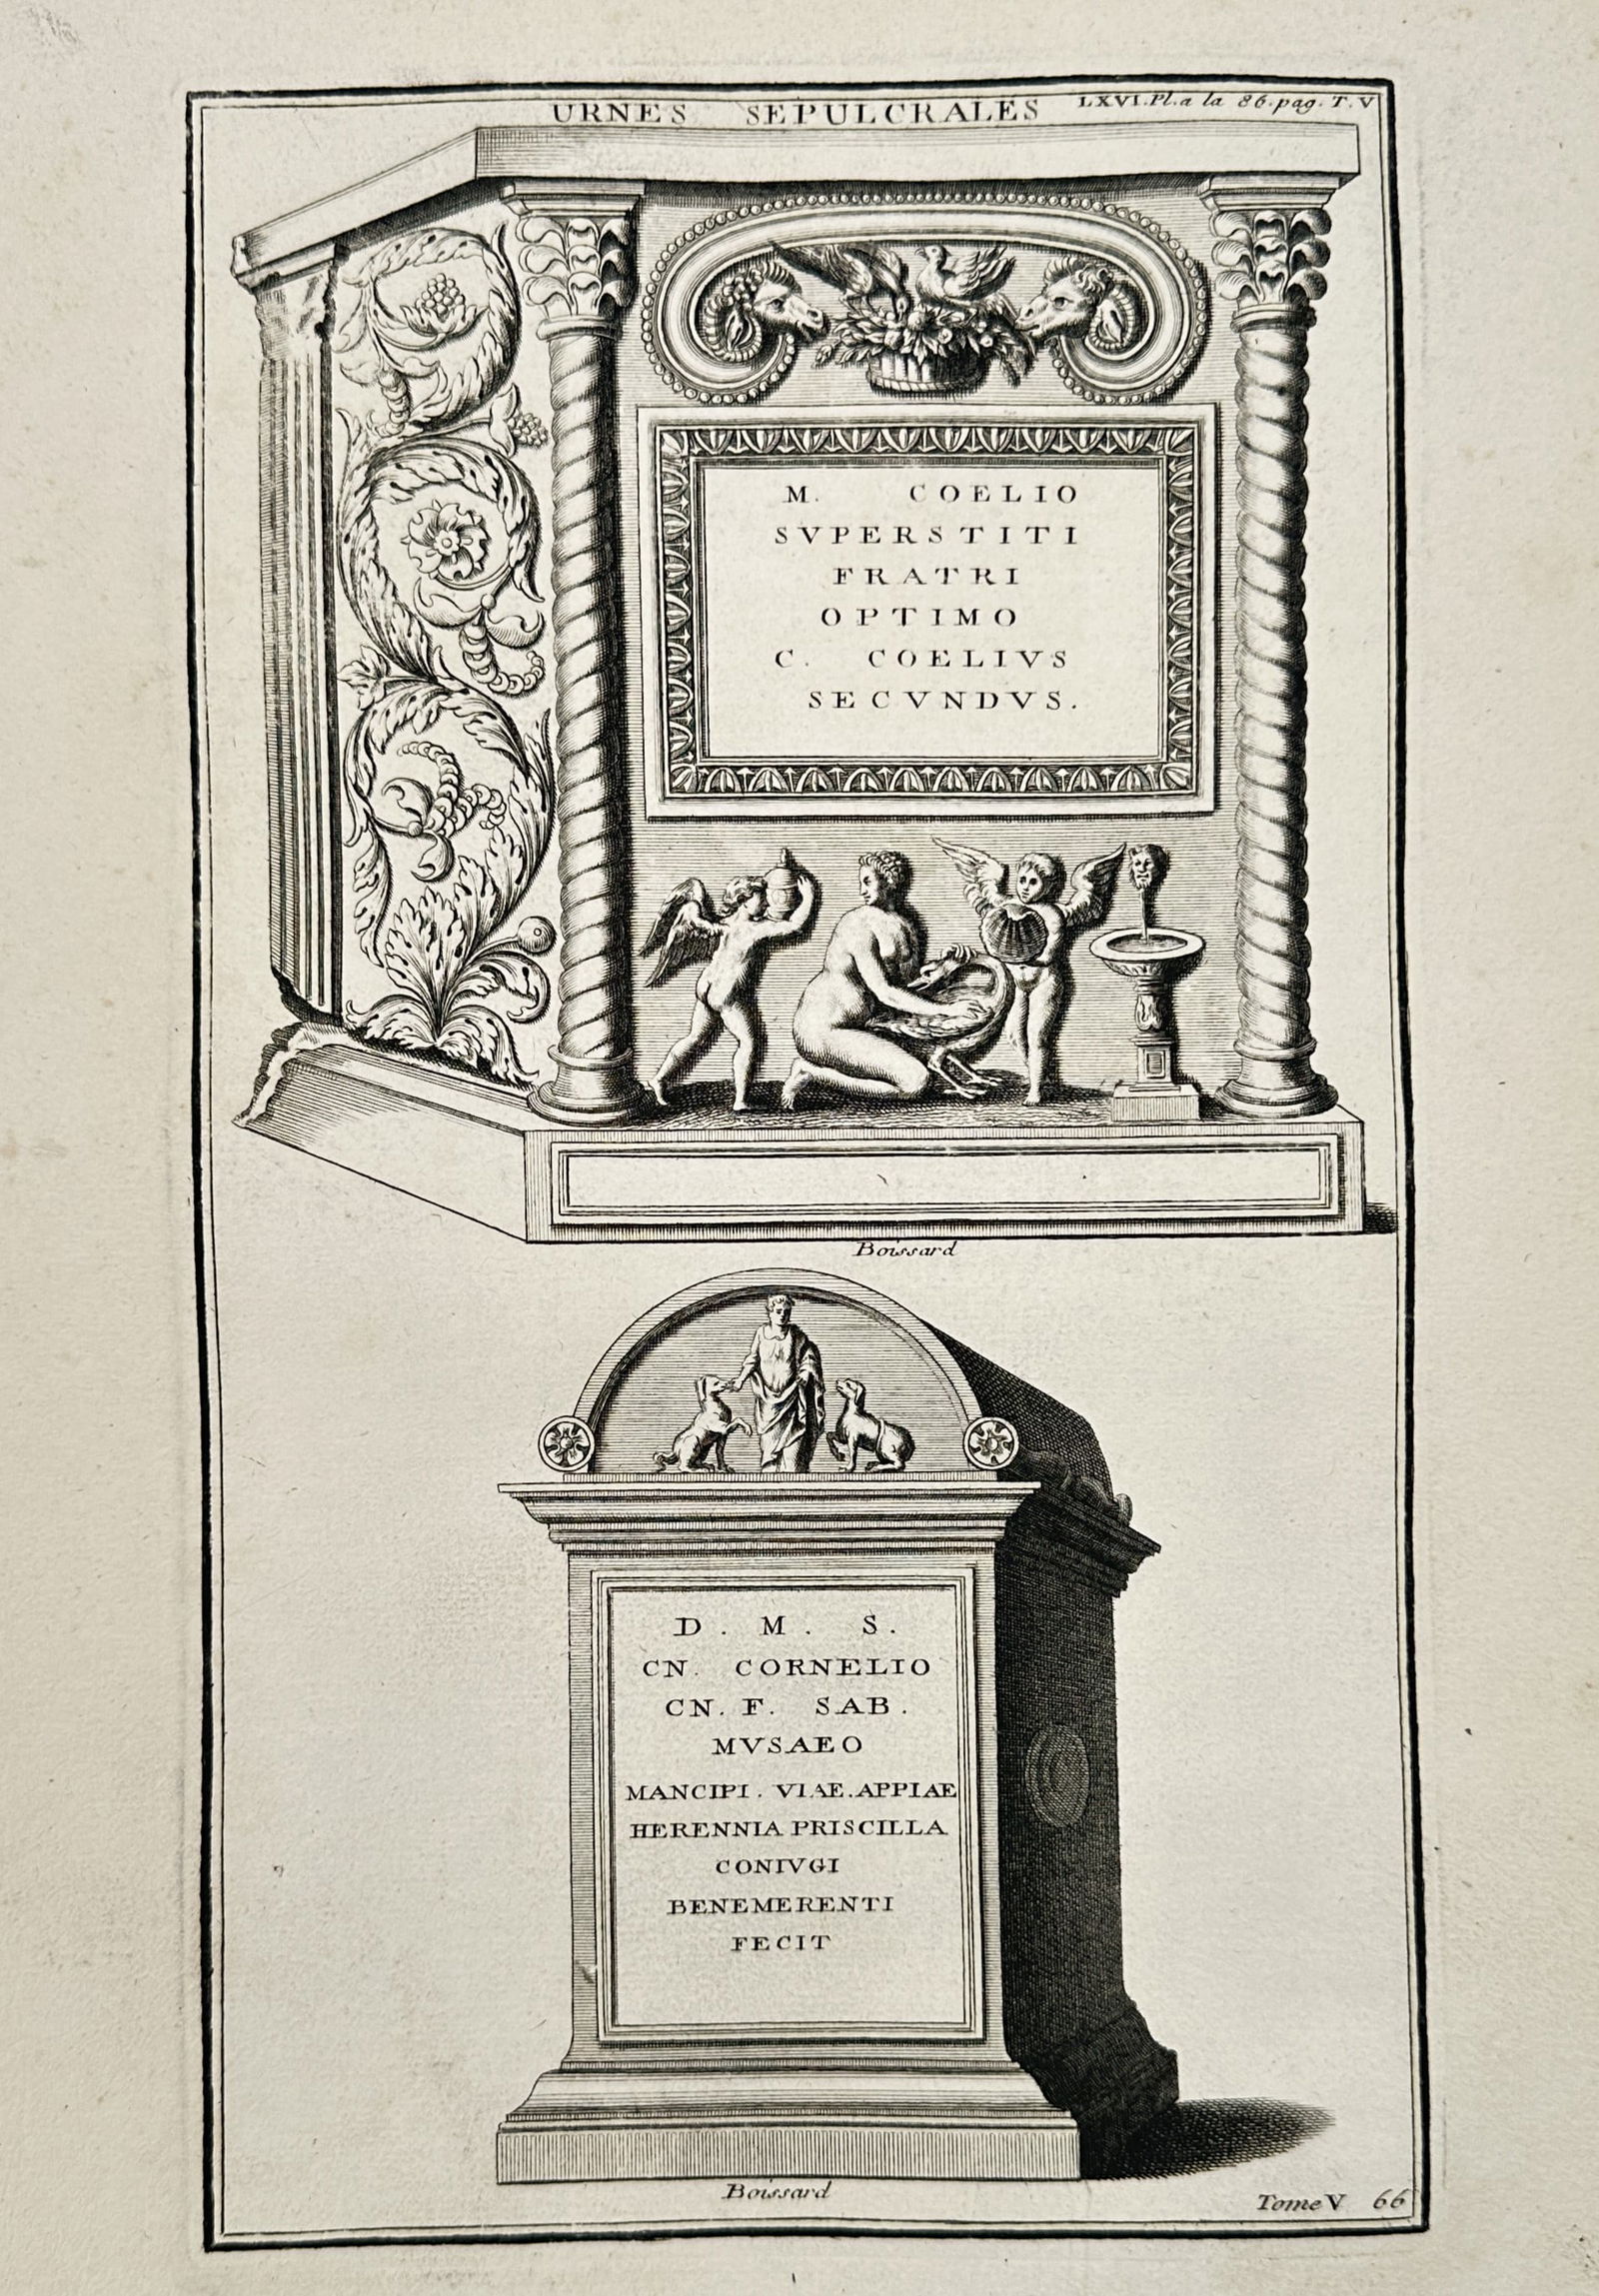 URNES SEPULCRALES LXVI. Pl. a la 86. pag. T. V
M. COELIO
SVPERSTITI
FRATRI
OPTIMO
C. COELIVS
SECVNDVS.
Boissard
D. M. S.
CN. CORNELIO
CN. F. SAB.
MVSAEO
MANCIPI. VIAE. APPIAE
HERENNIA PRISCILLA
CONIVGI
BENEMERENTI
FECIT
Boissard
Tome V 66